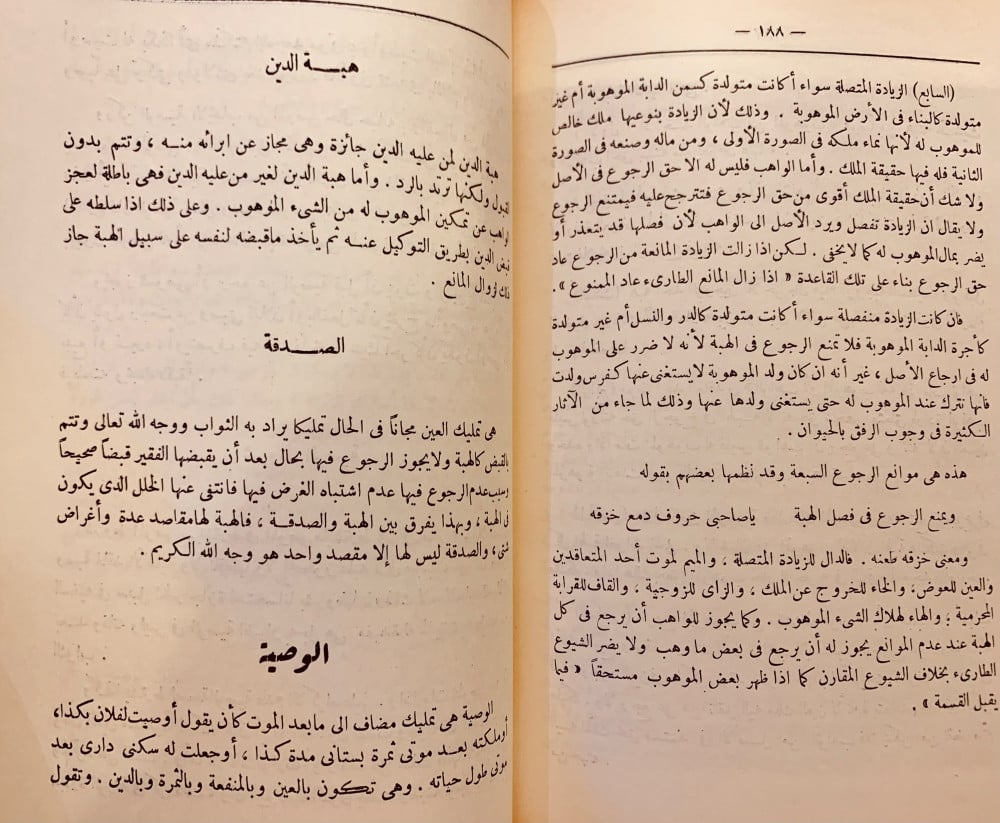 — ١٨٨ —
(السابع) الزيادة المتصلة سواء أكانت متولدة كسمن الدابة الموهوبة أم غير
متولدة كالبناء فى الأرض الموهوبة . وذلك لأن الزيادة بنوعيها ملك خالص
للموهوب له لأنها نماء ملكه فى الصورة الأولى ، ومن ماله وصنعه فى الصورة
الثانية فله فيها حقيقة الملك . وأما الواهب فليس له الا حق الرجوع فى الأصل
ولا شك أن حقيقة الملك أقوى من حق الرجوع فتترجح عليه فيمتنع الرجوع
ولا يقال ان الزيادة تفصل ويرد الأصل الى الواهب لأن فصلها قد يتعذر أو
يضر بمال الموهوب له كما لا يخفى . لكن اذا زالت الزيادة المانعة من الرجوع عاد
حق الرجوع بناء على تلك القاعدة « اذا زال المانع الطارىء عاد الممنوع » .
فان كانت الزيادة منفصلة سواء أكانت متولدة كالدر والنسل أم غير متولدة
كأجرة الدابة الموهوبة فلا تمنع الرجوع فى الهبة لأنه لا ضرر على الموهوب
له فى ارجاع الأصل ، غير أنه ان كان ولد الموهوبة لا يستغنى عنها كفرس ولدت
فانها تترك عند الموهوب له حتى يستغنى ولدها عنها وذلك لما جاء من الآثار
الكثيرة فى وجوب الرفق بالحيوان .
هذه هى موانع الرجوع السبعة وقد نظمها بعضهم بقوله
ويمنع الرجوع فى فصل الهبة ياصاحبى حروف دمع خزقه
ومعنى خزقه طعنه . فالدال للزيادة المتصلة ، والميم لموت أحد المتعاقدين
والعين للعوض، والخاء للخروج عن الملك ، والزاى للزوجية ، والقاف للقرابة
المحرمية ؛ والهاء لهلاك الشىء الموهوب . وكما يجوز للواهب أن يرجع فى كل
الهبة عند عدم الموانع يجوز له أن يرجع فى بعض ما وهب ولا يضر الشيوع
الطارىء بخلاف الشيوع المقارن كما اذا ظهر بعض الموهوب مستحقاً « فيما
يقبل القسمة » .
هبة الدين
هبة الدين لمن عليه الدين جائزة وهى مجاز عن ابرائه منه ، وتتم بدون
القبول ولكنها ترتد بالرد . وأما هبة الدين لغير من عليه الدين فهى باطلة لعجز
الواهب عن تمكين الموهوب له من الشىء الموهوب . وعلى ذلك اذا سلطه على
قبض الدين بطريق التوكيل عنه ثم يأخذ ماقبضه لنفسه على سبيل الهبة جاز
ذلك لزوال المانع .
الصدقة
هى تمليك العين مجاناً فى الحال تمليكا يراد به الثواب ووجه الله تعالى وتتم
بالقبض كالهبة ولا يجوز الرجوع فيها بحال بعد أن يقبضها الفقير قبضاً صحيحاً
وسبب عدم الرجوع فيها عدم اشتباه الغرض فيها فانتفى عنها الخلل الذى يكون
فى الهبة ، وبهذا يفرق بين الهبة والصدقة ، فالهبة لها مقاصد عدة وأغراض
شتى ، والصدقة ليس لها إلا مقصد واحد هو وجه الله الكريم .
الوصية
الوصية هى تمليك مضاف الى مابعد الموت كأن يقول أوصيت لفلان بكذا،
أو ملكته بعد موتى ثمرة بستانى مدة كذا ، أو جعلت له سكنى دارى بعد
موتى طول حياته . وهى تكون بالعين وبالمنفعة وبالثمرة وبالدين . وتقول